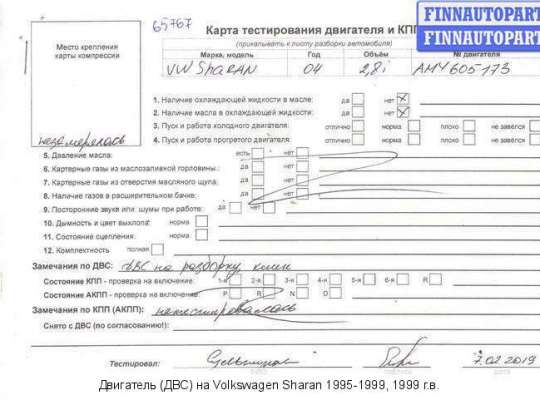 65767
FINNAUTOPART
FINNAUTOPART
Карта тестирования двигателя и КПП
(прикалывать к листу разборки автомобиля)
Место крепления
карты компрессии
Марка, модель Год Объём № двигателя
VW ShaRAN 04 2,8i AMY 605173
1. Наличие охлаждающей жидкости в масле: да нет
2. Наличие масла в охлаждающей жидкости: да нет
3. Пуск и работа холодного двигателя: отлично норма плохо не завёлся
незамерялась
4. Пуск и работа прогретого двигателя: отлично норма плохо не завёлся
5. Давление масла: есть нет
6. Картерные газы из маслозаливной горловины: да нет
7. Картерные газы из отверстия масляного щупа: да нет
8. Наличие газов в расширительном бачке: да нет
9. Посторонние звуки или шумы при работе: да нет
10. Дымность и цвет выхлопа: норма
11. Состояние сцепления: норма
12. Комплектность полная
Замечания по ДВС: ДВС на разборку, клин
Состояние КПП - проверка на включение: 1-я 2-я 3-я 4-я 5-я 6-я R
Состояние АКПП - проверка на включение: P R N D
Замечания по КПП (АКПП): нетестировалась
Снято с ДВС (по согласованию!):
Тестировал: 7.02.2019
ФИО подпись дата
Двигатель (ДВС) на Volkswagen Sharan 1995-1999, 1999 г.в.